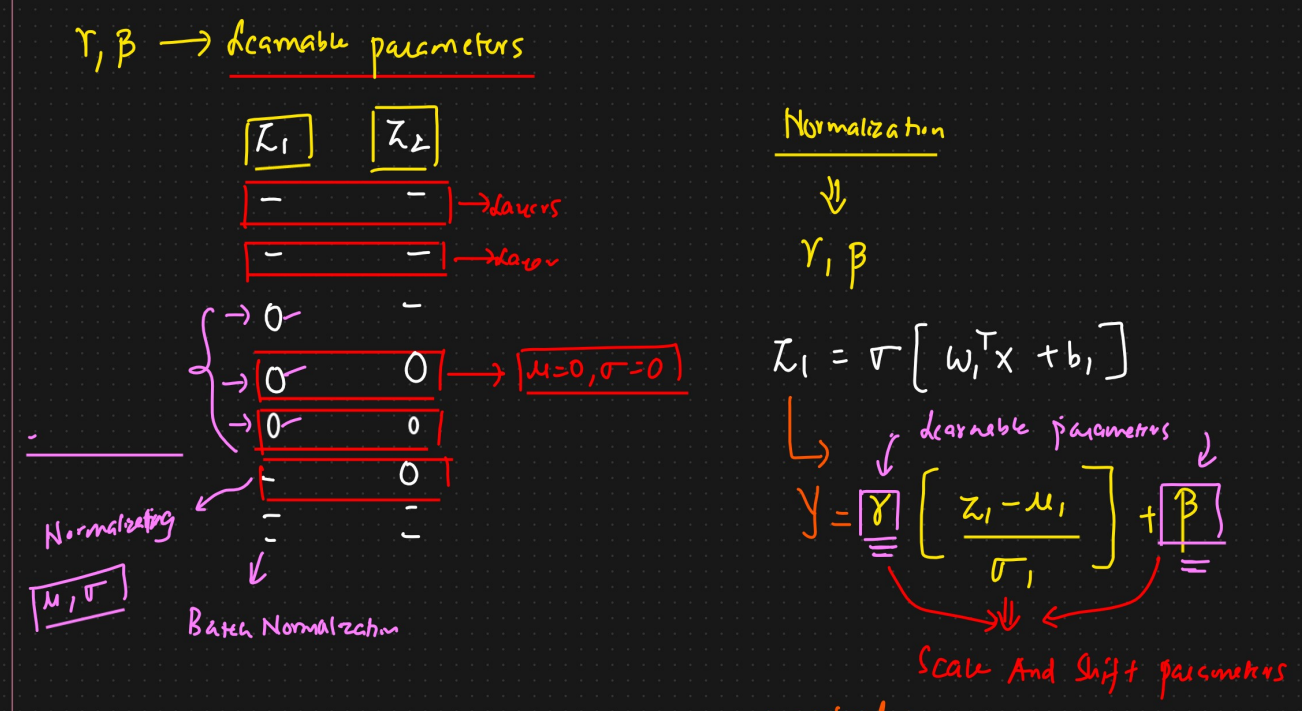 γ, β → Learnable parameters
Z1 Z2
→ Layers
→ Layer
→ 0 -
→ 0 0 → μ=0, σ=0
→ 0 0
- 0
Normalizating
μ, σ
Batch Normalization
Normalization
⇓
γ, β
Z1 = σ [ ω1ᵀx + b1 ]
Learnable parameters
y = γ [ (Z1 - μ1) / σ1 ] + β
Scale And Shift parameters